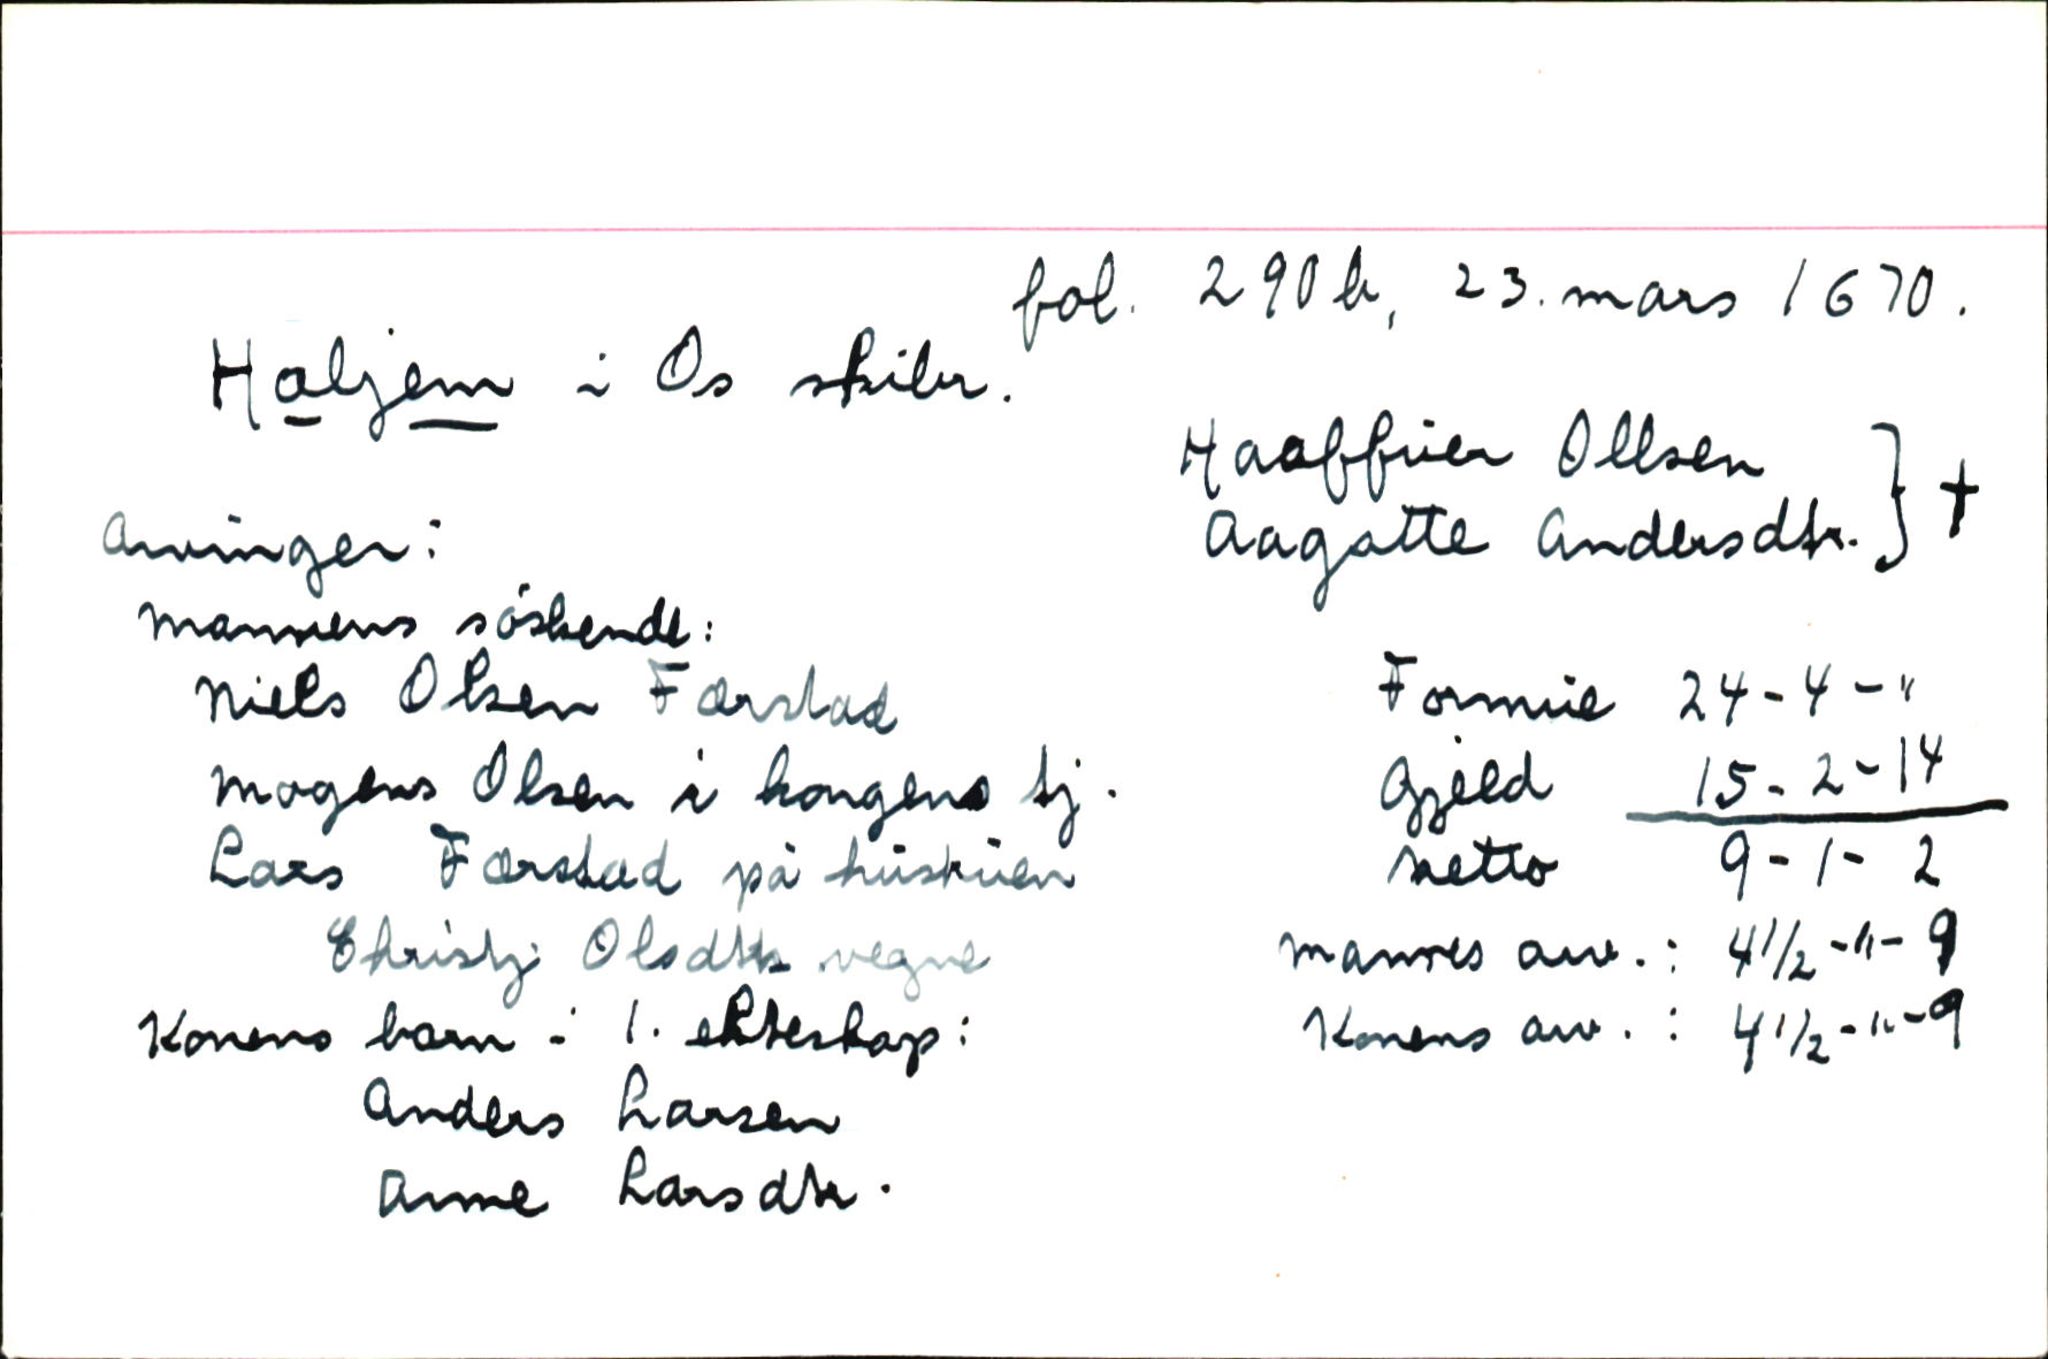 fol. 290b, 23. mars 1670.
Haljem i Os skibr.
Haaffuer Ollsen
Aagatte Andersdtr. } †
Arvinger:
Mannens søskende:
Niels Olsen Færstad
Mogens Olsen i kongens tj.
Lars Færstad på hustruen
Christj Olsdtrs vegne
Konens barn i 1. ekteskap:
Anders Larsen
Anne Larsdtr.
Formue 24 - 4 - "
Gjeld 15 - 2 - 14
Netto 9 - 1 - 2
Mannes arv. : 4 1/2 - " - 9
Konens arv. : 4 1/2 - " - 9